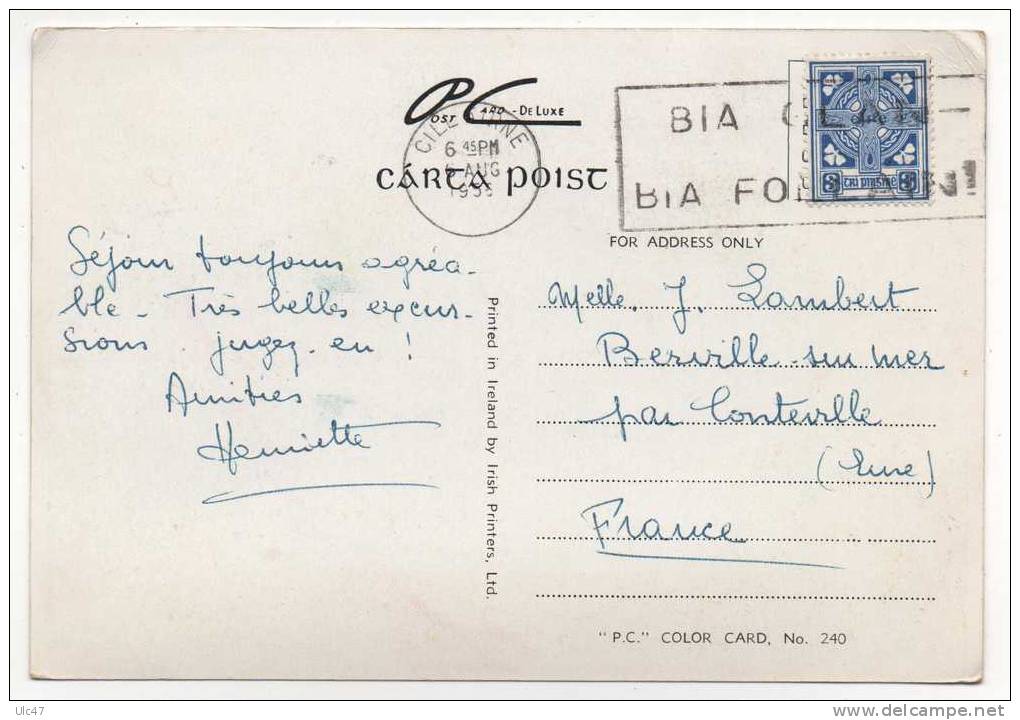 Post Card - De Luxe
CILL AIRNE
6 45PM
AUG
CÁRTA POIST
BIA
BIA FOLLÁIN
3 TRÍ PINGNE 3
FOR ADDRESS ONLY
Séjour toujours agréa-
ble - Très belles excur-
sions. jugez-en !
Amitiés
Henriette
Printed in Ireland by Irish Printers, Ltd.
Melle. J. Lambert
Berville-sur mer
par Conteville
(Eure)
France
"P.C." COLOR CARD, No. 240
Ulc47
delcampe.net